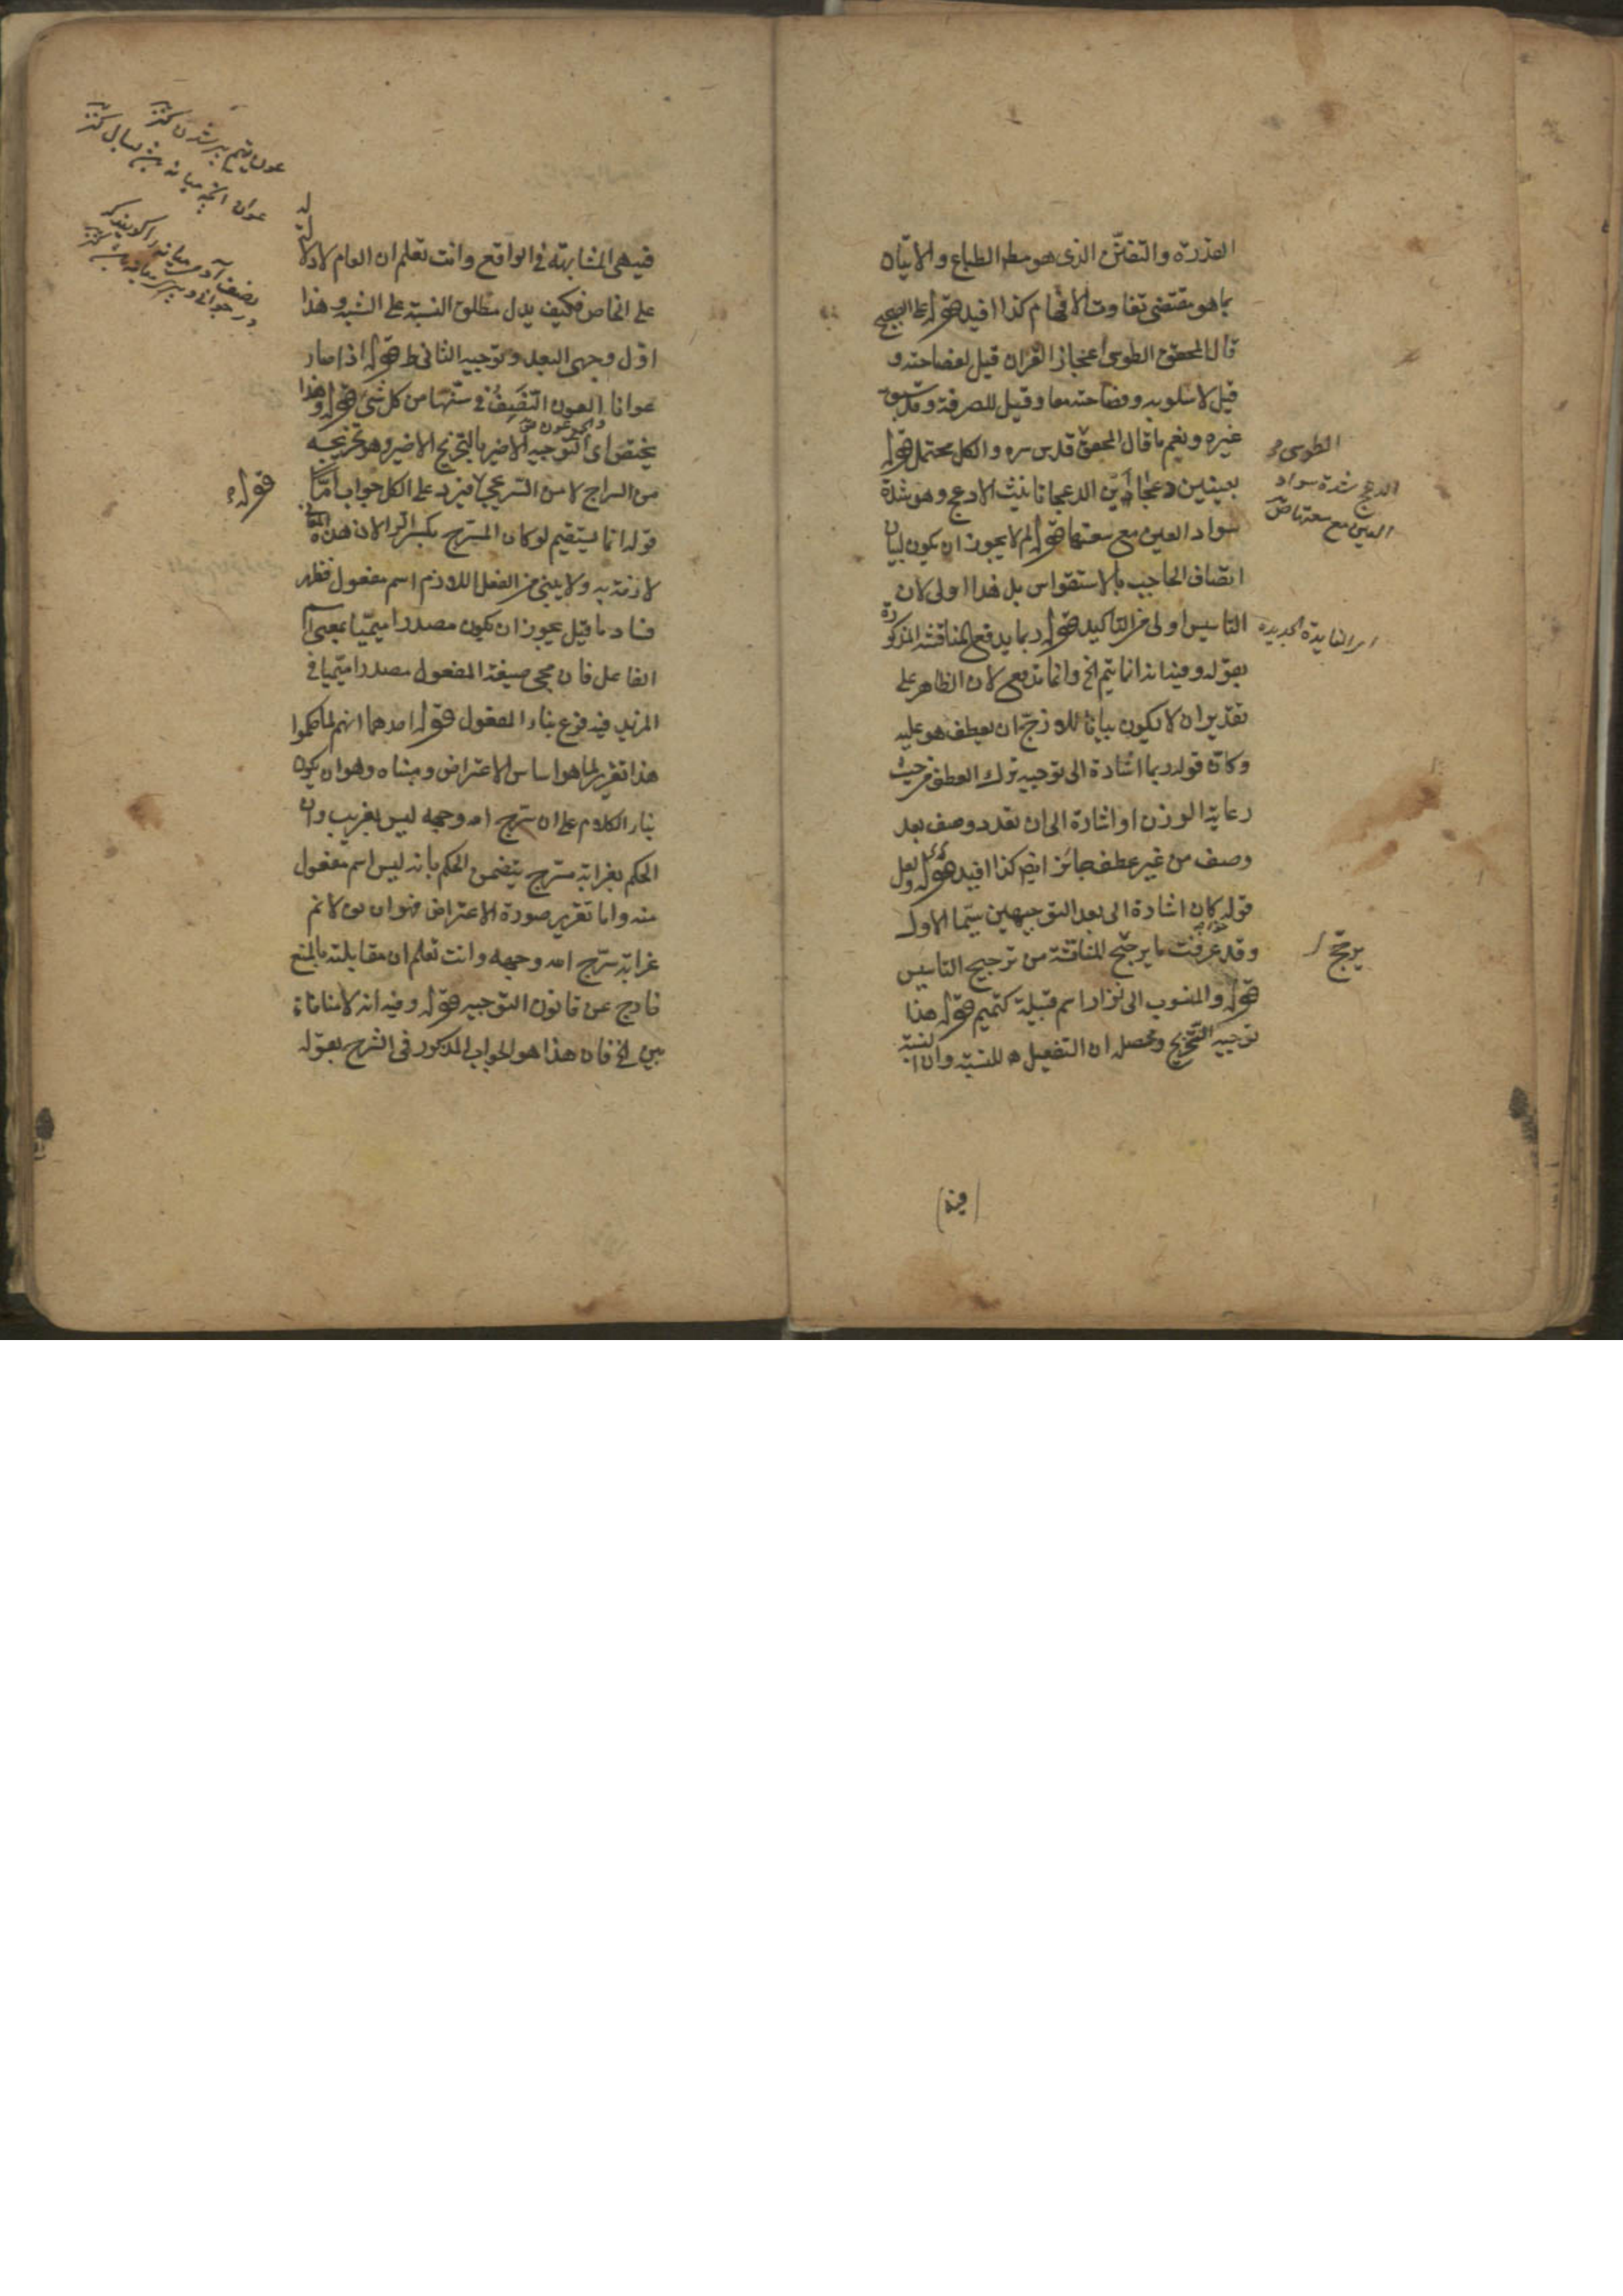 القدرة والتفنن الذى هو مط الطباع والاتيان
بما هو مقتضى تفاوت الافهام كذا افيد قوله على الصحيح
قال المحقق الطوسى اعجاز القران قيل لفصاحته و
قيل لاسلوبه وفصاحته معا وقيل للصرفة وقد سبق
غيره ونعم ما قال المحقق قدس سره والكل محتمل قوله
بعينين دعجاوين الدعجا تانيث الادعج وهو شدة
سواد العين مع سعتها قوله لم لا يجوز ان يكون لبيان
اتصاف الحاجب بالاستقواس بل هذا اولى لان
التاسيس اولى من التاكيد قوله ربما يدفع المناقشة المذكورة
بقوله وفيه انه انما يتم الخ وانما تدفع لان الظاهر على
تقدير ان لا يكون بيانا للازج ان يعطف هو عليه
وكان قوله ربما اشارة الى توجيه ترك العطف من حيث
رعاية الوزن او اشارة الى ان تعدد وصف بعد
وصف من غير عطف جائز ايض كذا افيد قوله ولعل
قوله كان اشارة الى بعد التوجيهين سيما الاول
وقد عرفت ما يرجح المناقشة من ترجيح التاسيس
قوله والمنسوب الى نزار اسم قبيلة كتميم قوله هذا
توجيه التخريج ومحصله ان التفعيل للنسبة وان النسبة
الطوسى
الدعج شدة سواد
العين مع سعتها ص
اى الفايدة الجديدة
يرجح
فيه
فيه هى المشابهة فى الواقع وانت تعلم ان العام لا دلالة له
على الخاص فكيف يدل مطلق النسبة على الشبه وهذا
اول وجهى البعد وتوجيه الثانى ط قوله اذا صار
عوانا العون النصف فى سنها من كل شئ قوله وهذا
والجمع عون ص
يختص اى التوجيه الاخير بالتخريج الاخير وهو تخريجه
من السراج لا من السريجى لا فيرد على الكل جواب اما
قوله انما يستقيم لو كان المسرج بكسر الراء الان هذه
لازمة به ولا يبنى من الفعل اللازم اسم مفعول فظهر
فساد ما قيل يجوز ان يكون مصدرا ميميا بمعنى اسم
الفاعل فان مجى صيغة المفعول مصدرا ميميا فى
المزيد فيه فرع بناء المفعول قوله احدهما انهم لما حكموا
هذا تقرير لما هو اساس الاعتراض ومبناه وهو ان يكون
بناء الكلام على ان سرج الله وجهه ليس بغريب وان
الحكم بغرابة مسرج يتضمن الحكم بانه ليس اسم مفعول
منه واما تقرير صورة الاعتراض فهو ان يق لا نم
غرابة سرج الله وجهه وانت تعلم ان مقابلته بالمنع
خارج عن قانون التوجيه قوله وفيه انه لا منافاة
بين الخ فان هذا هو الجواب المذكور فى الشرح بقوله
قوله